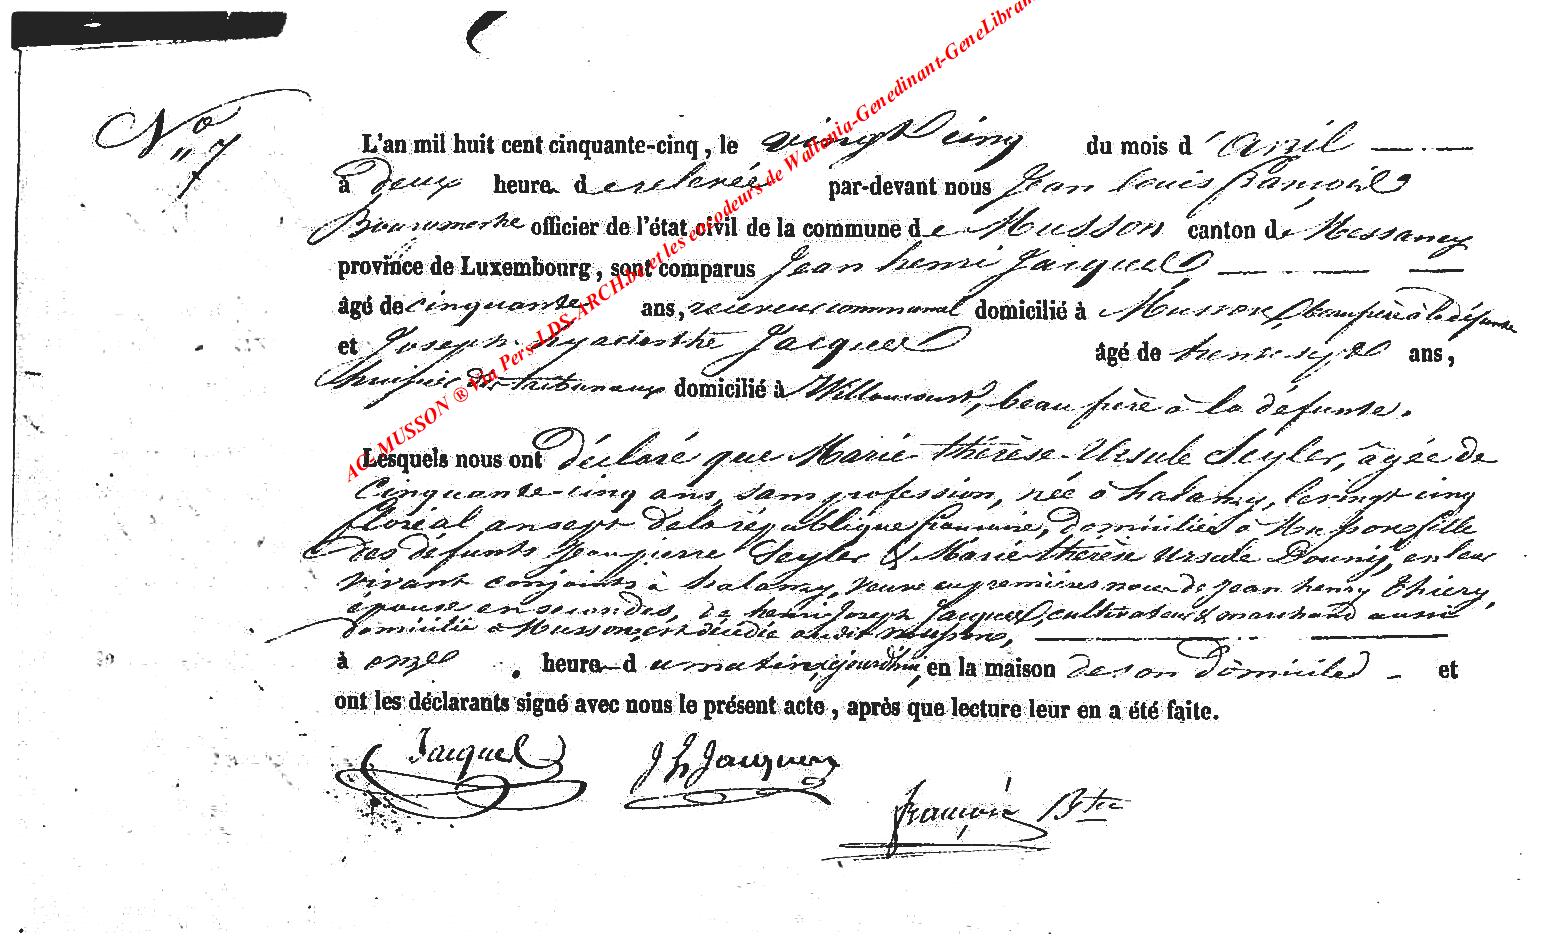 N° 7
L'an mil huit cent cinquante-cinq, le vingt cinq du mois d'avril
à deux heure de relevée par-devant nous Jean Louis François
Bourgmestre officier de l'état civil de la commune de Musson canton de Messancy
province de Luxembourg, sont comparus Jean henri Jacques
âgé de cinquante ans, receveur communal domicilié à Musson, beau père à la défunte
et Joseph hyacinthe Jacques âgé de trente-sept ans,
huissier des tribunaux domicilié à Willancourt, beau frère à la défunte.
Lesquels nous ont déclaré que Marie-thérèse-Ursule Seyler, âgée de
Cinquante-cinq ans, sans profession, née à halanzy, le vingt cinq
floréal an sept de la république française, domiciliée à Musson, fille
des défunts Jean pierre Seyler & Marie thérèse Ursule en leur
vivant conjoints à halanzy, veuve en premières noces de Jean henry thiery,
épouse en secondes, de henri Joseph Jacques, cultivateur & marchand aussi
domicilié à Musson, est décédée audit Musson,
à onze heure du matin, aujourd'hui, en la maison de son domicile et
ont les déclarants signé avec nous le présent acte, après que lecture leur en a été faite.
Jacques J h Jacques
françois Btre
AC-MUSSON ® Via Pers-LDS-ARCH.be et les encodeurs de Wallonia-Genedinant-GeneLibran